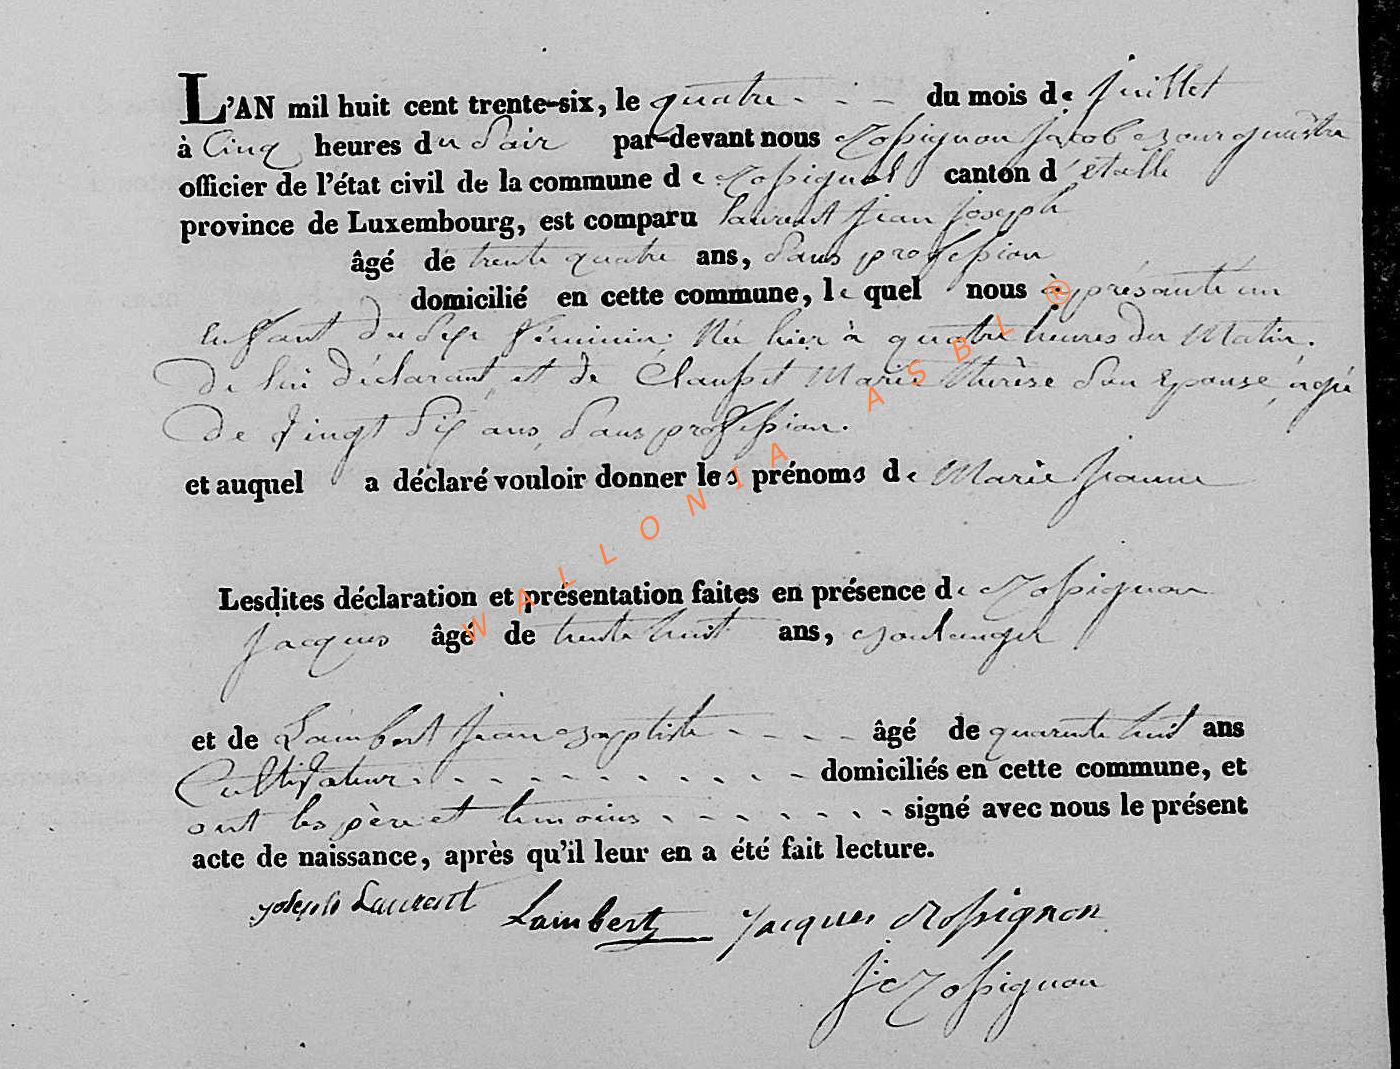 L'AN mil huit cent trente-six, le quatre - - - du mois de juillet
à Cinq heures du Soir par-devant nous Rossignon Jacob Bourgumestre
officier de l'état civil de la commune de Rossignol canton d'étalle
province de Luxembourg, est comparu laurent Jean Joseph
âgé de trente quatre ans, Sans profession
domicilié en cette commune, le quel nous à présanté un
Enfant du Sexe féminin; Née hier à quatre heures du Matin.
De lui déclarant, et de Marie Thérèse Son Epouse, agée
De Vingt Six ans, Sans profession.
et auquel a déclaré vouloir donner les prénoms de Marie Jeanne
Lesdites déclaration et présentation faites en présence de Rossignon
Jacques âgé de trente huit ans, Boulanger
et de Lambert Jean Baptiste - - - - âgé de quarente huit ans
Cultivateur - - - - - - - - - - - domiciliés en cette commune, et
ont les père et temoins - - - - - - - signé avec nous le présent
acte de naissance, après qu'il leur en a été fait lecture.
Joseph Laurent Lambert Jacques Rossignon
J: Rossignon
WALLONIA ASBL ®